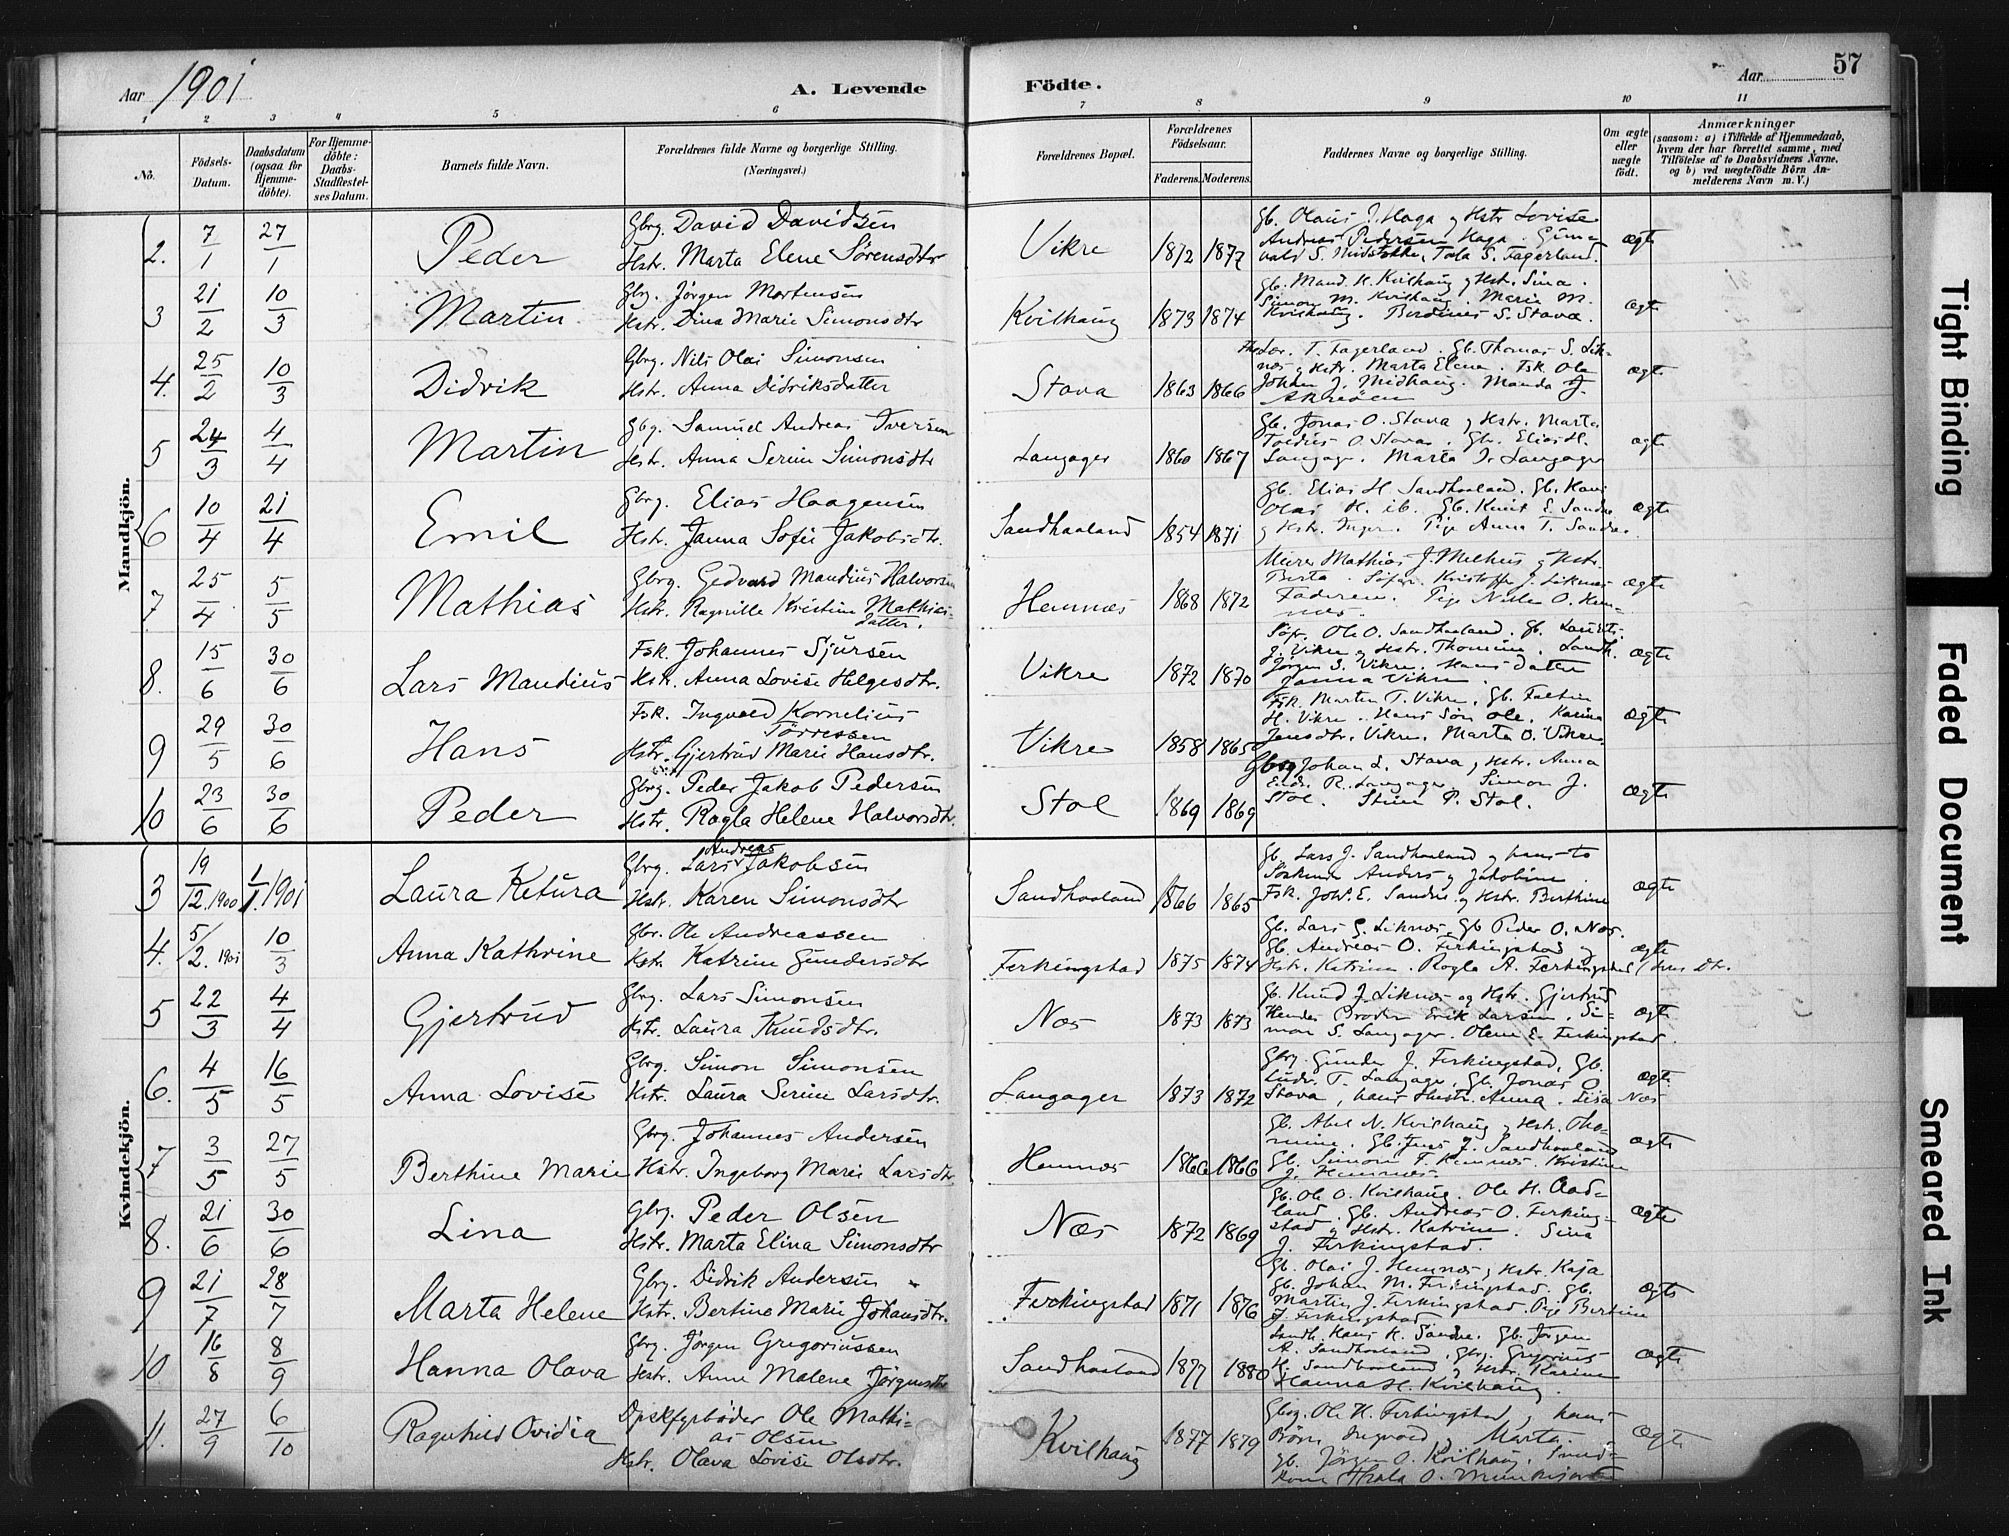 Aar 1901
A. Levende
Födte.
Aar
57
1 2 3 4 5 6 7 8 9 10 11
No.
Födsels-Datum.
Daabsdatum (ogsaa for Hjemme-döbte).
For Hjemme-döbte: Daabs-Stadfæstel-ses Datum.
Barnets fulde Navn.
Forældrenes fulde Navne og borgerlige Stilling.
(Næringsvei.)
Forældrenes Bopæl.
Forældrenes Födselsaar.
Faderens. Moderens.
Faddernes Navne og borgerlige Stilling.
Om ægte eller uægte födt.
Anmærkninger
(saasom: a) i Tilfælde af Hjemmedaab,
hvem der har forrettet samme, med
Tilföielse af to Daabsvidners Navne,
og b) ved uægtefödte Börn An-
melderens Navn m. V.)
Mandkjön.
2. 7/1 27/1 Peder
Gbrg. David Davidsen
Hstr. Marta Elene Sörensdtr
Vikre 1872 1877
Gb. Olaus J. Haga og Hstr Lovise
Andreas Pedersen Haga. Gun-
vald S. Midstokke, Tala S. Fagerland.
ægte
3 21/2 10/3 Martin
Gbrg. Jörgen Mortensen
Hstr. Dina Marie Simonsdtr
Kvilhaug 1873 1874
Gb. Maud. K. Kvilhaug og Hstr. Sina.
Simon M. Kvilhaug. Marie M.
Kvilhaug. Berdines S. Stava.
ægte
4. 25/2 10/3 Didrik
Gbrg. Nils Olai Simonsen
Hstr. Anna Didriksdatter
Stava 1863 1866
T. Fagerland. Gb. Thomas S. Lik-
nes og Hstr. Marta Elena. Fsk. Ole
Johan J. Midhaug. Manda J.
Akreöen
ægte
5 24/3 4/4 Martin
Gbg. Samuel Andreas Iversen
Hstr. Anna Serine Simonsdtr
Langager 1860 1867
Gb. Jonas O. Stava og Hstr. Marta
O. Stava. Gb. Elias H.
Langager. Marta J. Langager
ægte
6 10/4 21/4 Emil
Gbrg. Elias Haagensen
Hstr. Janna Sofie Jakobsdtr.
Sandhaaland 1854 1871
Gb. Elias H. Sandhaaland. Gb. Hans
Olai H. ib. Gb. Knut E. Sandve
og Hstr. Inger. Pige Anna T. Sandve.
ægte
7. 25/4 5/5 Mathias
Gbrg. Gedvard Mandius Halvorsen
Hstr. Ragnille Kristine Mathias-
datter.
Hemnes 1868 1872
Murer Mathias J. Melhus og Hstr.
Berta. Söfar. Kristoffer J. Liknes
Faderen. Pige Nille O. Hem-
nes.
ægte
8. 15/6 30/6 Lars Mandius
Fsk. Johannes Sjursen
Hstr. Anna Lovise Helgesdtr.
Vikre 1872 1870
Söfr. Ole O. Sandhaaland. Gb. Laurits
J. Vikre og Hstr. Thomine. Landh.
Jörgen S. Vikre. Hans Datter
Janna Vikre.
ægte
9 29/5 30/6 Hans
Fsk. Ingvald Kornelius
Törressen
Hstr. Gjertrud Marie Hansdtr.
Vikre 1858 1865
Fsk. Martin T. Vikre. Gb. Faltin
H. Vikre. Hans Sön Ole. Karina
Jensdtr. Vikre. Marta O. Vikre.
ægte
10 23/6 30/6 Peder
Gbrg. Peder Jakob Pedersen
Hstr. Ragla Helene Halvorsdtr.
Stol 1869 1869
Gbrg Johan L. Stava og Hstr. Anna
Endr. R. Langager. Simon J.
Stol. Stine P. Stol.
ægte
Kvindekjön.
3 19/12.1900 1/1.1901 Laura Ketura
Gbrg. Lars Andreas Jakobsen
Hstr. Karen Simonsdtr
Sandhaaland 1866 1865
Gb. Lars J. Sandhaaland og hans to
Söskende Anders og Jakobine.
Fsk. Joh. E. Sandve og Hstr. Berthine
ægte
4. 5/2. 1901 10/3 Anna Kathrine
Gbr. Ole Andreassen
Hstr. Katrine Gundersdtr
Ferkingstad 1875 1874
Gb. Lars G. Liknes. Gb Peder O. Nes.
Gb. Andreas O. Ferkingstad og
Hstr. Katrine. Ragla A. Ferkingstad (hans Dtr.
ægte
5 22/3 4/4 Gjertrud
Gbrg. Lars Simonsen
Hstr. Laura Knudsdtr.
Næs 1873 1873
Gb. Knud J. Liknes og Hstr. Gjertrud
Hendes Broder Erik Larsen. Si-
mon S. Langager. Olene E. Ferkingstad.
ægte
6. 4/5 16/5 Anna Lovise
Gbrg. Simon Simonsen
Hstr. Laura Serine Larsdtr.
Langager 1873 1872
Gbrg. Gunder J. Ferkingstad, Gb.
Ludv. T. Langager, Gb. Jonas O.
Stava, hans Hustr. Anna. Lisa Næs
ægte
7 3/5 27/5 Berthine Marie
Gbrg. Johannes Andersen
Hstr. Ingeborg Marie Larsdtr.
Hemnes 1866 1866
Gb. Abel N. Kvilhaug og Hstr. Tho-
mine. Gb. Jens J. Sandhaaland
Gb. Simon T. Hemnes. Kristine
J. Hemnes.
ægte
8. 21/6 30/6 Lina
Gbrg. Peder Olsen
Hstr. Marta Elina Simonsdtr
Næs 1872 1869
Gb. Ole O. Kvilhaug. Ole H. Aad-
land. Gb. Andreas O. Ferking-
stad og Hstr. Katrine. Sina
J. Ferkingstad.
ægte
9 21/7 28/7 Marta Helene
Gbrg. Didrik Andersen
Hstr. Bertine Marie Johansdtr.
Ferkingstad 1871 1876
Gb. Olai J. Hemnes og Hstr. Kaja
Gb. Johan M. Ferkingstad. Gb.
Martin J. Ferkingstad. Pige Bertine
J. Ferkingstad
ægte
10 16/8 8/9 Hanna Olava
Gbrg. Jörgen Gregoriussen
Hstr. Anne Malene Jörgensdtr
Sandhaaland 1877 1880
Landh. Hans K. Sandve. Gb. Jörgen
A. Sandhaaland. Gbg. Gregorius
H. Sandhaaland og Hstr. Karine
Hanna H. Kvilhaug.
ægte
11. 27/9 6/10 Ragnhild Ovidia
Dpskfyrböder Ole Mathi-
as Olsen
Hstr. Olava Lovise Olsdtr.
Kvilhaug 1877 1879
Gbrg. Ole H. Ferkingstad og hans
Börn Ingvald og Marta.
Gb. Jörgen O. Kvilhaug.
Thala O.
ægte
Tight Binding
Faded Document
Smeared Ink